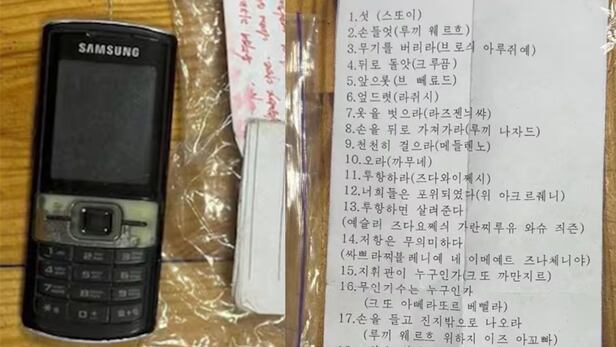 SAMSUNG
1.섯 (스또이)
2.손들엇(루끼 웨르흐)
3.무기를 버리라(브로씌 아루쥐예)
4.뒤로 돌앗(크루곰)
5.앞으롯(브 뻬료드)
6.엎드렷(라쥐시)
7.옷을 벗으라(라즈젠늬쌰)
8.손을 뒤로 가져가라(루끼 나자드)
9.천천히 걸으라(메들렌노)
10.오라(까무네)
11.투항하라(즈다와이쩨시)
12.너희들은 포위되였다(위 아크르줴니)
13.투항하면 살려준다
(예슬리 즈다요쩨씌 가란찌루유 와슈 직즌)
14.저항은 무의미하다
(싸쁘라찌블레니예 네 이메예트 즈나체니야)
15.지휘관이 누구인가(크또 까만지르)
16.무인기수는 누구인가
(크또 아뻬라또르 베뻴라)
17.손을 들고 진지밖으로 나오라
(루끼 웨르흐 위하지 이즈 아꼬빠)